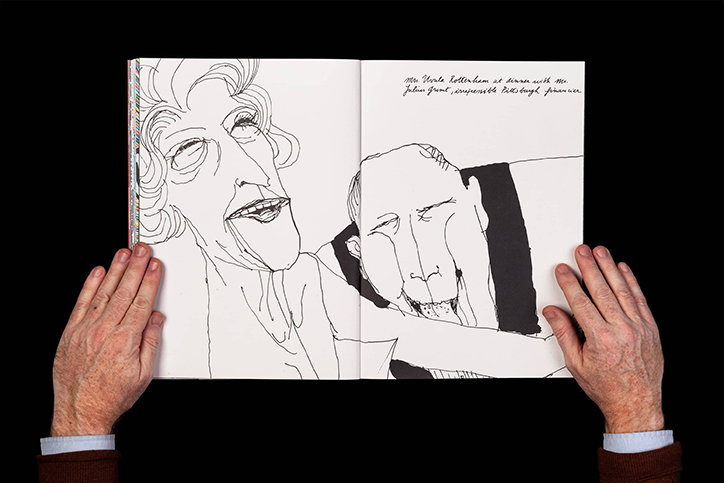 Mrs Ursula Rottenham at dinner with Mr.
Julius Grunt, irrepressible Pittsburgh financier